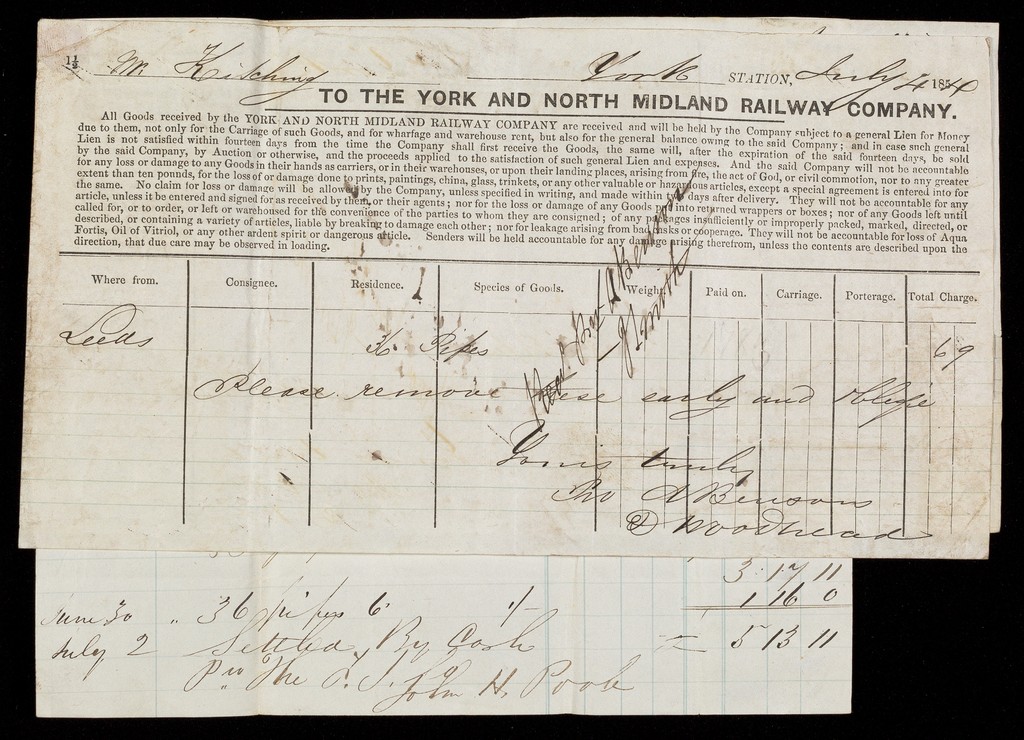 1½
Mr. Kitching York STATION, July 4 1850
TO THE YORK AND NORTH MIDLAND RAILWAY COMPANY.
All Goods received by the YORK AND NORTH MIDLAND RAILWAY COMPANY are received and will be held by the Company subject to a general Lien for Money
due to them, not only for the Carriage of such Goods, and for wharfage and warehouse rent, but also for the general balance owing to the said Company; and in case such general
Lien is not satisfied within fourteen days from the time the Company shall first receive the Goods, the same will, after the expiration of the said fourteen days, be sold
by the said Company, by Auction or otherwise, and the proceeds applied to the satisfaction of such general Lien and expenses. And the said Company will not be accountable
for any loss or damage to any Goods in their hands as carriers, or in their warehouses, or upon their landing places, arising from fire, the act of God, or civil commotion, nor to any greater
extent than ten pounds, for the loss of or damage done to prints, paintings, china, glass, trinkets, or any other valuable or hazardous articles, except a special agreement is entered into for
the same. No claim for loss or damage will be allowed by the Company, unless specified in writing, and made within two days after delivery. They will not be accountable for any
article, unless it be entered and signed for as received by them, or their agents; nor for the loss or damage of any Goods put into returned wrappers or boxes; nor of any Goods left until
called for, or to order, or left or warehoused for the convenience of the parties to whom they are consigned; of any packages insufficiently or improperly packed, marked, directed, or
described, or containing a variety of articles, liable by breaking to damage each other; nor for leakage arising from bad casks or cooperage. They will not be accountable for loss of Aqua
Fortis, Oil of Vitriol, or any other ardent spirit or dangerous article. Senders will be held accountable for any damage arising therefrom, unless the contents are described upon the
direction, that due care may be observed in loading.
Where from. Consignee. Residence. Species of Goods. Weight. Paid on. Carriage. Porterage. Total Charge.
Leeds 36 Pipes 6 9
Please remove these early and oblige
Yours truly
Pro A Bensons
D Woodhead
By A Benson
J Smith
3 17 11
June 30 " 36 pipes 6' 1/- 1 16 0
July 2 Settled By Cash 5 13 11
Pro The T. S. John H. Poole